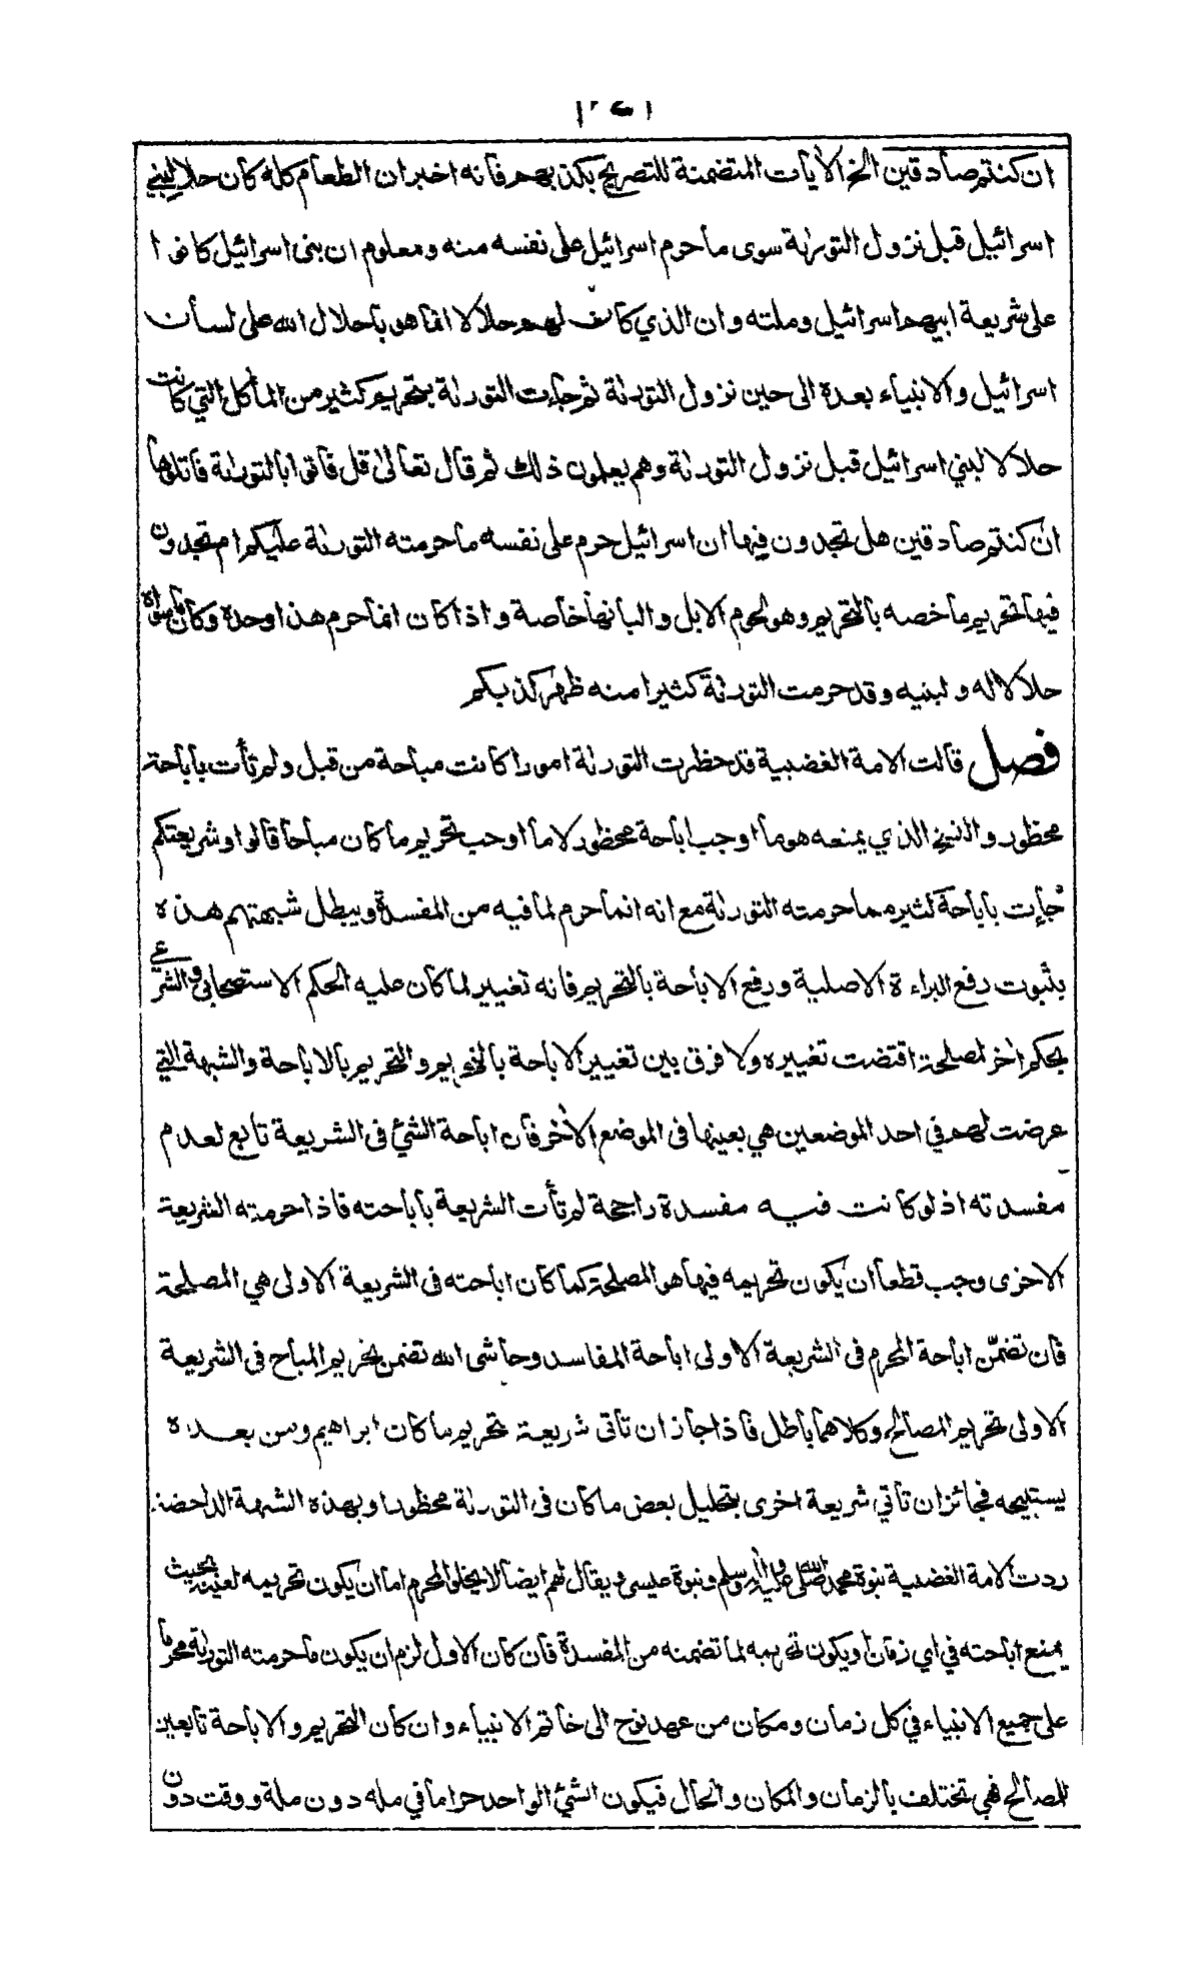 ان كنتم صادقين الخ الأيات المتضمنة للتصريح بكذبهم فانه اخبر ان الطعام كله كان حلا لبني
اسرائيل قبل نزول التورىة سوى ما حرم اسرائيل على نفسه منه ومعلوم ان بنى اسرائيل كانوا
على شريعة ابيهم اسرائيل وملته وان الذي كان لهم حلالا انما هو باحلال الله على لسان
اسرائيل والانبياء بعده الى حين نزول التورىة ثم جاءت التورىة بتحريم كثير من المأكل التي كانت
حلالا لبني اسرائيل قبل نزول التورىة وهم يعلمون ذلك ثم قال تعالى قل فاتوا بالتورىة فاتلوها
ان كنتم صادقين هل تجدون فيها ان اسرائيل حرم على نفسه ما حرمته التورىة عليكم ام تجدون
فيها تحريم ما خصه بالتحريم وهو لحوم الابل والبانها خاصة واذا كان انما حرم هذا وحده وكان ما سواه
حلالا له ولبنيه وقد حرمت التورىة كثيرا منه ظهر كذبكم
فصل قالت الامة الغضبية قد حظرت التورىة امورا كانت مباحة من قبل ولم تأت باباحة
محظور والنسخ الذي يمنعه هو ما اوجب اباحة محظور لا ما اوجب تحريم ما كان مباحا قالوا وشريعتكم
جاءت باباحة كثير مما حرمته التورىة مع انه انما حرم لما فيه من المفسدة ويبطل شبهتهم هذه
بثبوت رفع البراءة الاصلية ورفع الاباحة بالتحريم فانه تغيير لما كان عليه الحكم الاستصحابي والشرعي
بحكم اخر لمصلحة اقتضت تغييره ولا فرق بين تغيير الاباحة بالتحريم والتحريم بالاباحة والشبهة التي
عرضت لهم في احد الموضعين هي بعينها فى الموضع الأخر فان اباحة الشئ فى الشريعة تابع لعدم
مفسدته اذ لو كانت فيه مفسدة راجحة لم تأت الشريعة باباحته فاذا حرمته الشريعة
الاخرى وجب قطعا ان يكون تحريمه فيها هو المصلحة كما كان اباحته فى الشريعة الاولى هي المصلحة
فان تضمّن اباحة المحرم فى الشريعة الاولى اباحة المفاسد وحاشى الله تضمن تحريم المباح فى الشريعة
الاولى تحريم المصالح وكلاهما باطل فاذا جاز ان تاتى شريعة بتحريم ما كان ابراهيم ومن بعده
يستبيحه فجائز ان تاتي شريعة اخرى بتحليل بعض ما كان فى التورىة محظورا وبهذه الشبهة الداحضة
ردت الامة الغضبية نبوة محمد صلى الله عليه واله وسلم ونبوة عيسى ويقال لهم ايضا لا يخلو المحرم اما ان يكون تحريمه لعينه بحيث
يمنع اباحته في اي زمان او يكون تحريمه لما تضمنه من المفسدة فان كان الاول لزم ان يكون ما حرمته التورىة محرما
على جميع الانبياء في كل زمان ومكان من عهد نوح الى خاتم الانبياء وان كان التحريم والاباحة تابعين
للمصالح فهي تختلف بالزمان والمكان والحال فيكون الشئ الواحد حراما في مله دون ملة ووقت دون